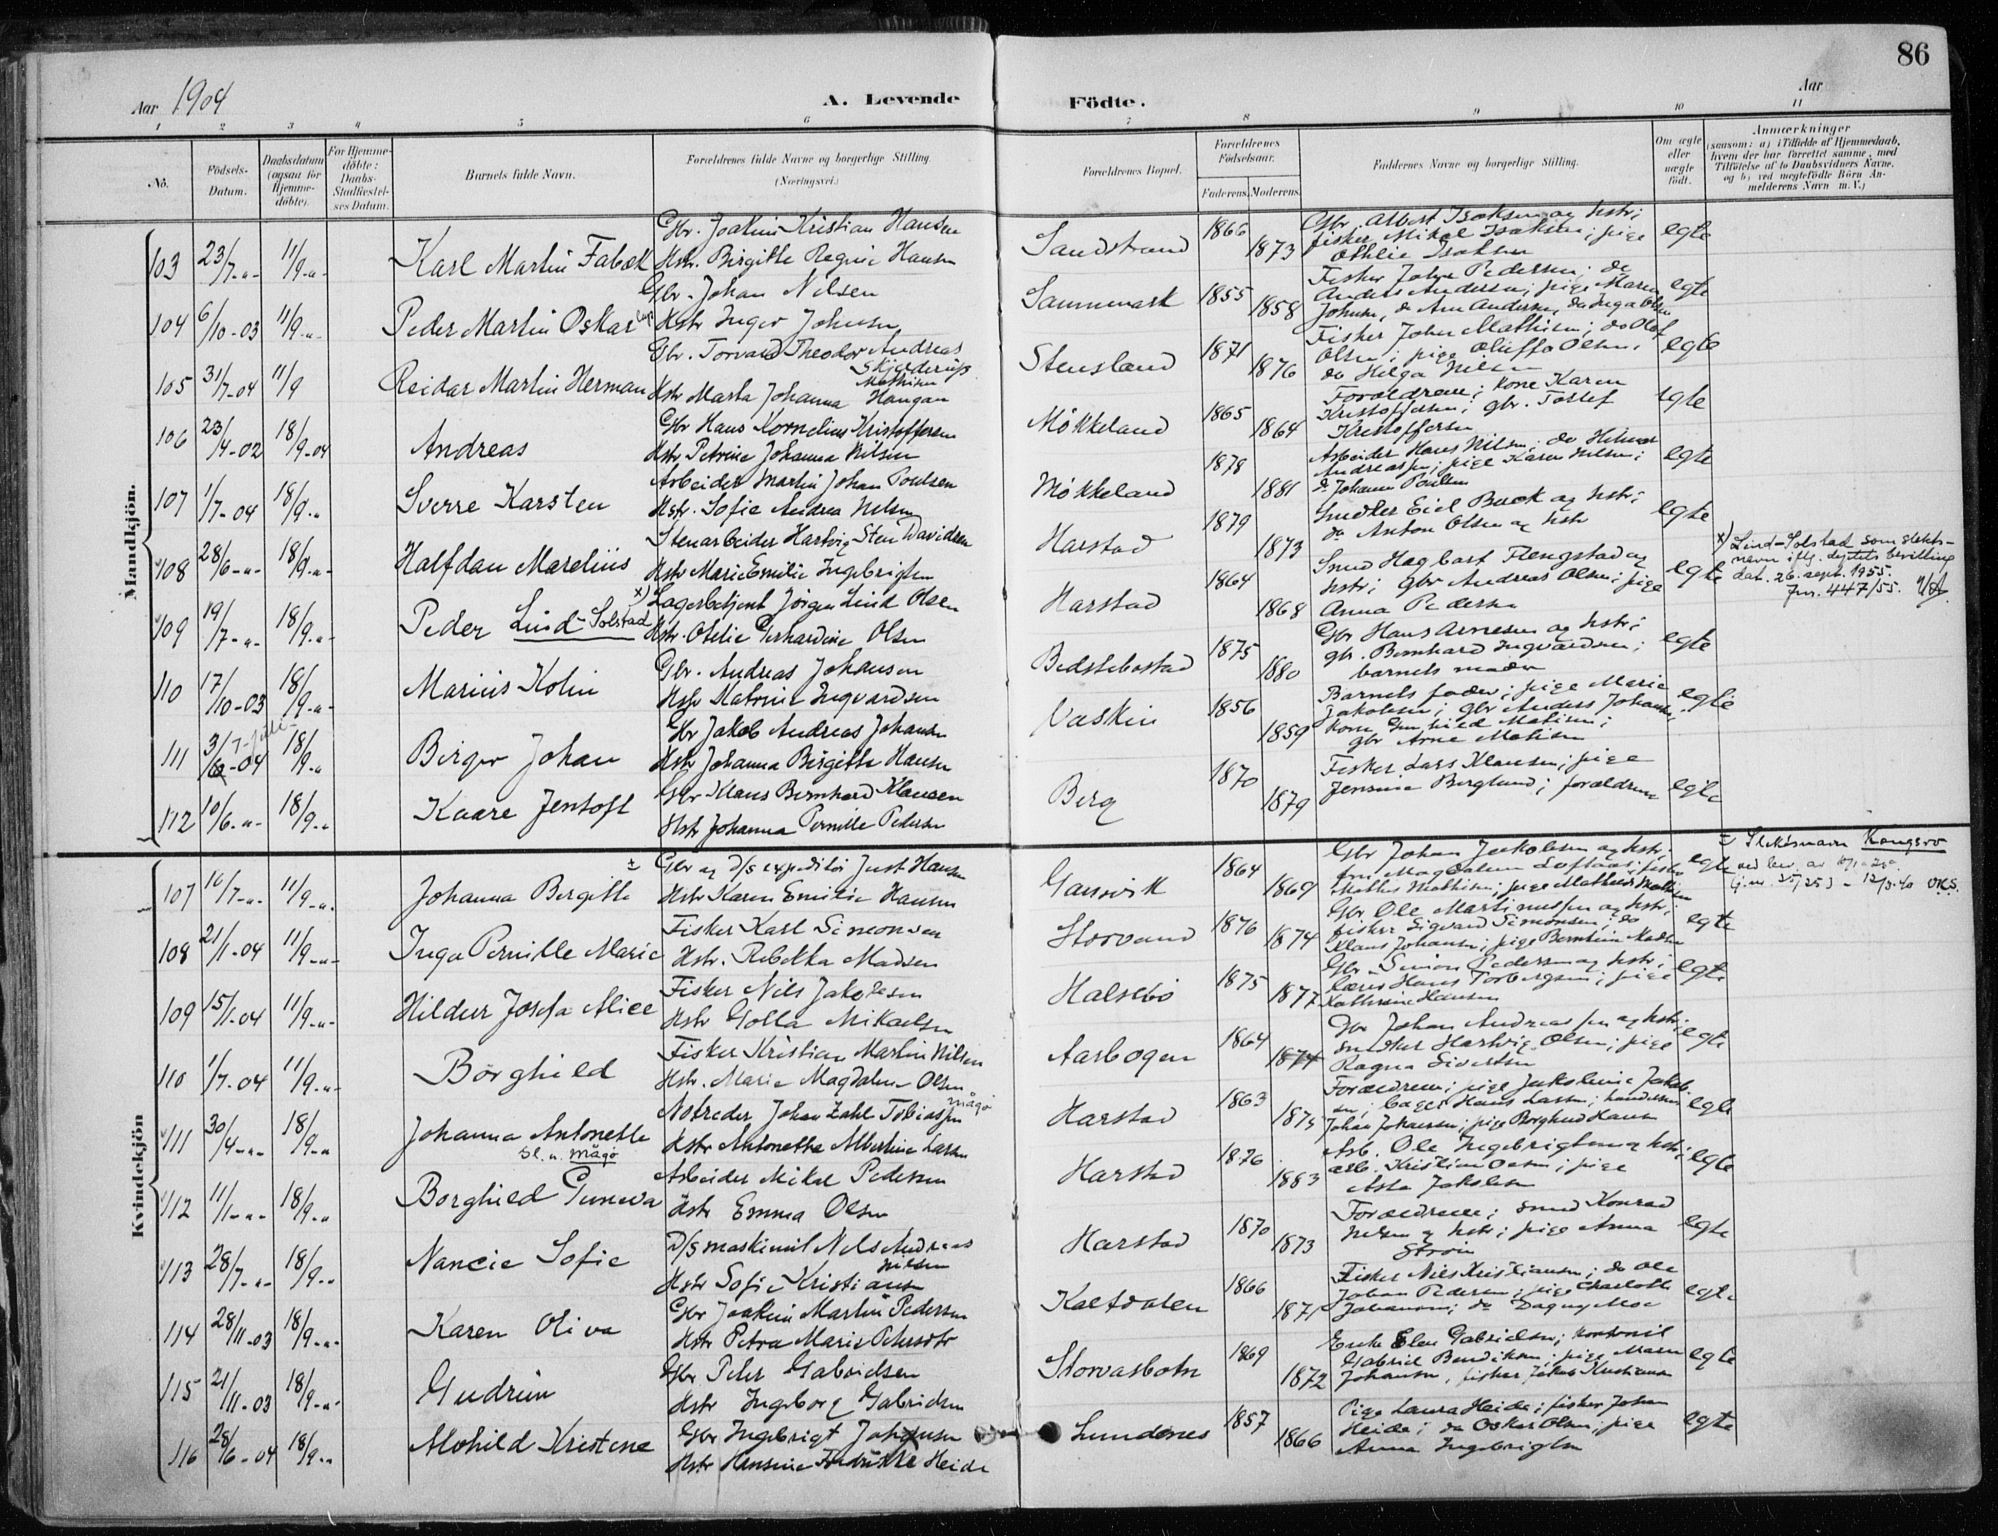 86
Aar 1904
A. Levende
Födte.
Aar
1 2 3 4 5 6 7 8 9 10 11
No.
Födsels-Datum.
Daabsdatum (ogsaa for Hjemme-döbte).
For Hjemme-döbte: Daabs-Stadfæstel-ses Datum.
Barnets fulde Navn.
Forældrenes fulde Navne og borgerlige Stilling. (Næringsvei.)
Forældrenes Bopæl.
Forældrenes Födselsaar.
Faderens. Moderens.
Faddernes Navne og borgerlige Stilling.
Om ægte eller uægte født.
Anmærkninger
(saasom: a) i Tilfælde af Hjemmedaab, hvem der har forrettet samme, med Tilföielse af to Daabsvidners Navne, og b) ved uegtefödte Börn An-melderens Navn m. V.)
Mandkjön.
103 23/7-"- 11/9-"- Karl Martin Gbr. Joakim Kristian Hansen Sandstrand 1866 Gbr. Albert Isaksen og hstr;
Hstr. Birgitte Regine Hansen 1873 fisker Mikal Isaksen; pige egte
Othilie Isaksen
104 6/10-03 11/9-"- Peder Martin Oskar Gbr. Johan Nilsen Sammemark 1855 Fisker Johan Pedersen; do
Hstr Inger Johnsen 1858 Anders Andersen; pige Maren egte
Johnsen, do Ane Andersen, do Inga Olsen
105 31/7-04 11/9 Reidar Martin Herman Gbr. Torvald Theodor Andreas Stensland 1871 Fisker Johan Mathisen; do Olaf
Skjelderup Mathisen
Hstr Marta Johanna Haugan 1876 Olsen; pige Oluffa Olsen; egte
do Helga Nilsen
106 23/4-02 18/9-04 Andreas Gbr Hans Kornelius Kristoffersen Møkkeland 1865 Forældrene; kone Karen
Hstr Petrine Johanna Nilsen 1864 Kristoffersen; gbr. Tollef egte
Kristoffersen
107 1/7-04 18/9-" Sverre Karsten Arbeider Martin Johan Poulsen Møkkeland 1878 Arbeider Hans Nilsen; do Hilmar
Hstr. Sofie Andrea Nilsen 1881 Andreassen; pige Karen Nilsen; egte
do Johanna Poulsen
108 28/6-"- 18/9-"- Halfdan Marelius Stenarbeider Hartvig Sten Davidsen Harstad 1879 Snedker Eid Buck og hstr;
Hstr Marie Emilie Ingebrigtsen 1873 do Anton Olsen og hstr egte
109 19/7-"- 18/9-"- Peder Lind-Solstad x) Lagerbetjent Jörgen Lind Olsen Harstad 1864 Smed Hagbart Flengstad og
Hstr. Otelie Gerhardine Olsen 1868 hstr; gbr Andreas Olsen; pige egte
Anna Pedersen
x) Lind-Solstad som slekts-
navn iflg. dep.tets bevilling
dat. 26. sept. 1955.
Jnr. 447/55.
110 17/10-03 18/9-"- Marius Kolin Gbr. Andreas Johansen Bedstebostad 1875 Gbr Hans Arnesen og hstr;
Hstr Katrine Ingvardsen 1880 gbr. Bernhard Ingvardsen; egte
barnets moder
111 3/7-04 juli 18/9-" Birger Johan Gbr Jakob Andreas Johansen Vaskin 1856 Barnets fader; pige Marie
Hstr Johanna Birgitte Hansen 1859 Jakobsen; gbr Anders Johansen; egte
kone Gunhild Matisen;
gbr Arne Matisen
112 10/6-"- 18/9-" Kaare Jentoft Gbr Klaus Bernhard Klausen Berg 1870 Fisker Lars Klausen; pige
Hstr Johanna Pernille Pedersen 1879 Jensine Berglund; forældrene egte
Kvindekjön
107 16/7-"- 11/9-"- Johanna Bergitte ± Gbr og D/S expeditör Just Hansen Gausvik 1864 Gbr Johan Jakobsen og hstr;
Hstr Karen Emilie Hansen 1869 fru Magdalena; fisker egte
Mathis Mathisen; pige Mathilde Mathisen
± Slektsnavn Kongsvo
12/3.40 O.K.S.
108 21/1-04 11/9-"- Inga Pernille Marie Fisker Karl Simonsen Storvand 1876 Gbr Ole Martinussen og hstr;
Hstr. Rebekka Madsen 1874 fisker Sigvard Simonsen; do egte
Klaus Johansen; pige Madsen
109 15/1-04 11/9-"- Hildur Josefa Alice Fisker Nils Jakobsen Halsebö 1875 Gbr Simon Pedersen og hstr;
Hstr Golla Mikaelsen 1877 Hans Torbergsen; pige egte
Kathrine Hansen
110 1/7-04 11/9-"- Borghild Fisker Kristian Martin Nilsen Aarbogen 1864 Gbr Johan Andreassen og hstr;
Hstr. Marie Magdalene Olsen 1874 snedker Hartvig Olsen; pige egte
Ragna Sivertsen
111 30/4-"- 18/9-" Johanna Antonette Notreder Johan Zahl Tobiassen Mågø Harstad 1863 Forældrene; pige Jakobine Jakob-
sl.n. Mågø
Hstr Antonette Albertine Larsen 1875 sen; bager Hans Larsen; egte
Johan Johansen; pige Borghild Hansen
112 11/1-"- 18/9-" Borghild Guneva Arbeider Mikal Pedersen Harstad 1876 Arb. Ole Ingebrigtsen og hstr;
Hstr Emma Olsen 1883 arb. Kristian Olsen; pige egte
Asta Jakobsen
113 28/7-"- 18/9-" Nancie Sofie D/S maskinist Nels Andreas Nilsen Harstad 1870 Forældrene; smed Konrad
Hstr Sofie Kristiansen 1873 Nilsen og hstr; pige Anna egte
Ström
114 28/11-03 18/9-"- Karen Oliva Gbr Joakim Martin Pedersen Kalfdalen 1866 Fisker Nils Kristiansen; do Ole
Hstr Petra Marie Pedersdtr 1871 Johan Pedersen; pige Charlotte egte
Johansen; do Dagny Moe
115 21/11-03 18/9-"- Gudrun Gbr Peter Gabrielsen Storvasbotn 1869 Enke Elen Gabrielsen; kontorist
Hstr Ingeborg Gabrielsen 1872 Gabriel Bendiksen; pige Maren egte
Johansen, fisker Jakob Kristiansen
116 28/6-04 18/9-" Alvhild Kristene Gbr Ingebrigt Johansen Lundenes 1857 Pige Laura Heide; fisker Johan
Hstr Hansine Fredrikke Heide 1866 Heide; do Oskar Olsen; pige egte
Anna Ingebrigtsen